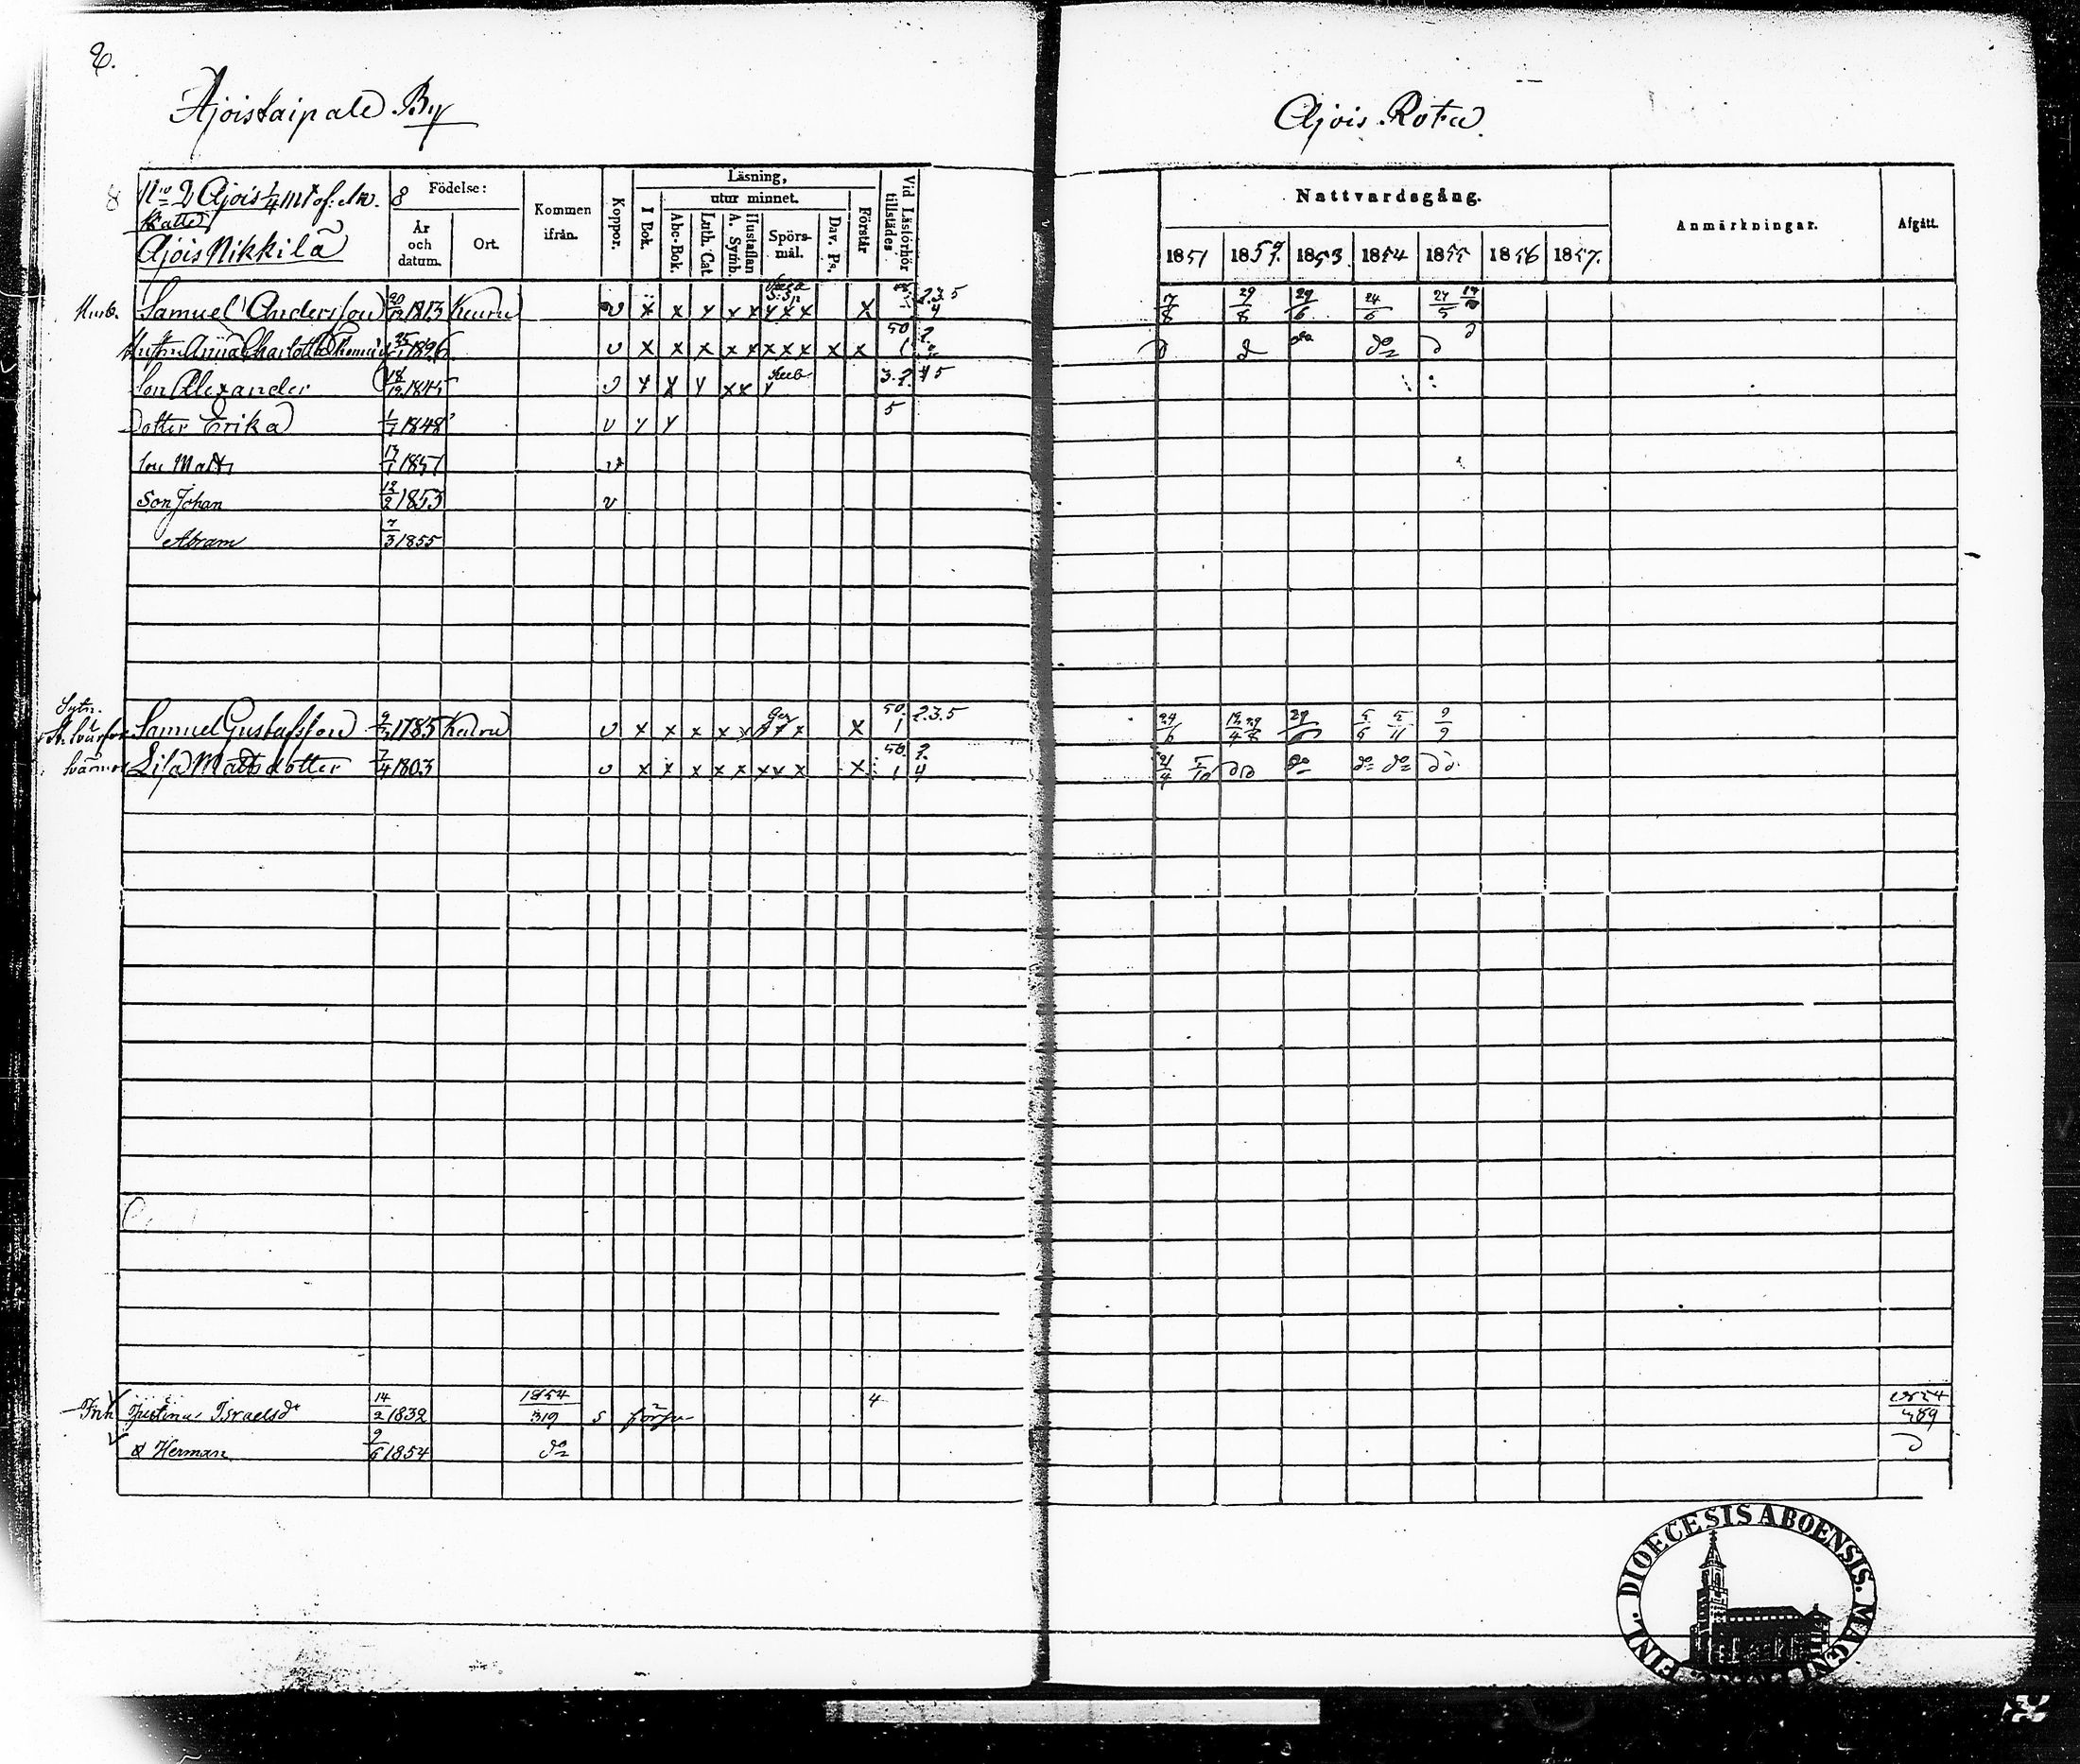 2.
Ajoistaipale By
Ajois Rota
8 No 2 Ajois 1/4 mt of: åk. 8
Skatte
Ajois Nikkilä
Födelse:
År och datum.
Ort.
Kommen ifrån.
Koppor.
Läsning,
I Bok.
utur minnet.
Abc-Bok.
Luth. Cat.
A. Symb.
Hustaflan
Spörsmål.
Dav. Ps.
Förstår
Vid Läsförhör tillstädes
Nattvardsgång.
1851 1852. 1853 1854 1855 1856 1857.
Anmärkningar.
Afgått.
Husb. Samuel Andersson 20/12 1813 Kuru v x x x x x x x x x 2.3.5 4 17/8 29/8 29/6 24/6 27/5
Hustru Anna Charlotta v x x x x x x x x x x 50 1 do
Son Alexander 18/12 1845 v x x x x x x 3. 5
Dotter Erika 1/7 1848 v x x 5
Son Matts 17/1 1851 v
Son Johan 12/2 1853 v
Abram 7/3 1855
Sytn.
Samuel Gustafsson 1785 Kuru v x x x x x x x x x 50 1 2.3.5 24/6 29/6 5/6 5/11 9/9
Lisa Mattsdotter 7/4 1803 v x x x x x x x x x 50 1 4 21/4 5/10 do do do
Inh. Justina Israelsdr 14/2 1832 1854/319 s 4 1854/489
o Herman 9/6 1854 do
FINL. DIOECESIS ABOENSIS. MAGNI